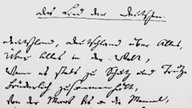 Das Lied der Deutschen.
Deutschland, Deutschland über Alles,
Über Alles in der Welt,
Wenn es stets zu Schutz und Trutze
Brüderlich zusammenhält,
Von der Maas bis an die Memel,